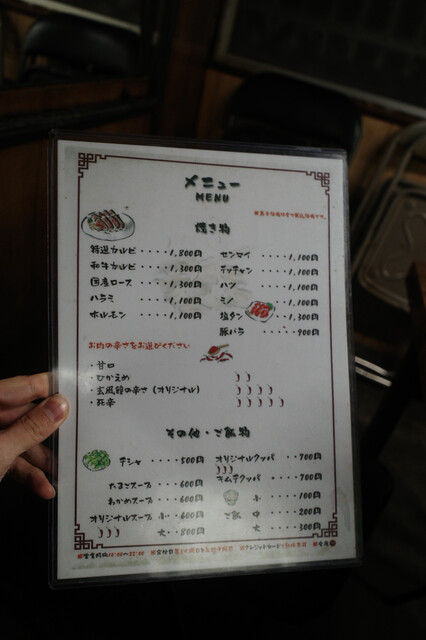 メニュー
MENU
焼き物
特選カルビ・・・・1,800円
和牛カルビ・・・・1,300円
国産ロース・・・・1,300円
ハラミ・・・・1,100円
ホルモン・・・・1,100円
センマイ・・・・1,100円
テッチャン・・・・1,100円
ハツ・・・・1,100円
ミノ・・・・1,100円
塩タン・・・・1,300円
豚バラ・・・・900円
お肉の辛さをお選びください
・甘口
・ひかえめ
・玄風館の辛さ（オリジナル）
・死辛
その他・ご飯物
チシャ・・・・500円
たまごスープ・・600円
わかめスープ・・600円
オリジナルスープ 小・・600円
大・・800円
オリジナルクッパ・・700円
キムチクッパ・・700円
ご飯 小・・100円
中・・200円
大・・300円